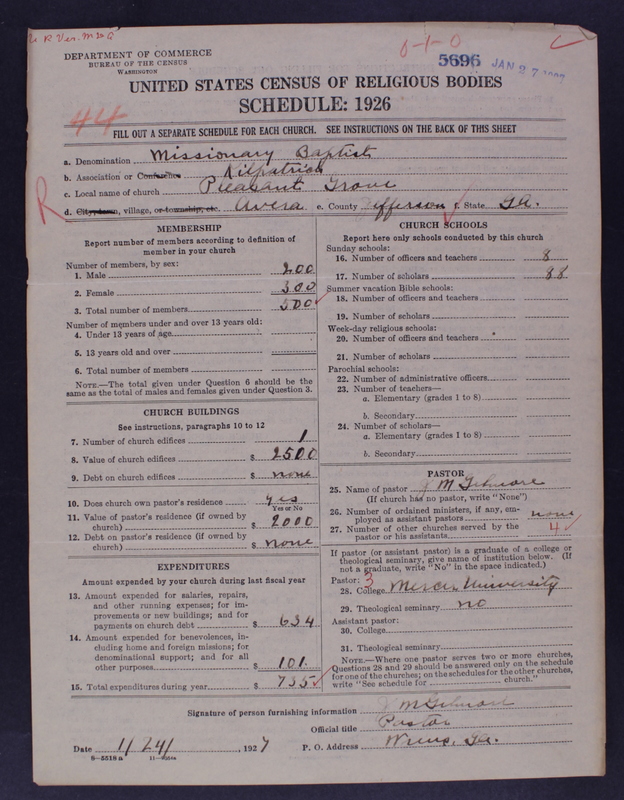 U R Ver. M & A
DEPARTMENT OF COMMERCE
BUREAU OF THE CENSUS
WASHINGTON
0-1-0
5696 JAN 27
UNITED STATES CENSUS OF RELIGIOUS BODIES
SCHEDULE: 1926
44
FILL OUT A SEPARATE SCHEDULE FOR EACH CHURCH. SEE INSTRUCTIONS ON THE BACK OF THIS SHEET
a. Denomination Missionary Baptist
b. Association or Conference Kilpatrick
c. Local name of church Pleasant Grove
R
d. City, town, village, or township, etc. Avera e. County Jefferson f. State Ga.
MEMBERSHIP
Report number of members according to definition of
member in your church
Number of members, by sex:
1. Male 200
2. Female 300
3. Total number of members 500
Number of members under and over 13 years old:
4. Under 13 years of age
5. 13 years old and over
6. Total number of members
NOTE.—The total given under Question 6 should be the
same as the total of males and females given under Question 3.
CHURCH BUILDINGS
See instructions, paragraphs 10 to 12
7. Number of church edifices 1
8. Value of church edifices $ 2500
9. Debt on church edifices $ none
10. Does church own pastor's residence yes
Yes or No
11. Value of pastor's residence (if owned by
church) $ 2000
12. Debt on pastor's residence (if owned by
church) $ none
EXPENDITURES
Amount expended by your church during last fiscal year
13. Amount expended for salaries, repairs,
and other running expenses; for im-
provements or new buildings; and for
payments on church debt $ 634
14. Amount expended for benevolences, in-
cluding home and foreign missions; for
denominational support; and for all
other purposes $ 101
15. Total expenditures during year $ 735
CHURCH SCHOOLS
Report here only schools conducted by this church
Sunday schools:
16. Number of officers and teachers 8
17. Number of scholars 88
Summer vacation Bible schools:
18. Number of officers and teachers
19. Number of scholars
Week-day religious schools:
20. Number of officers and teachers
21. Number of scholars
Parochial schools:
22. Number of administrative officers
23. Number of teachers—
a. Elementary (grades 1 to 8)
b. Secondary
24. Number of scholars—
a. Elementary (grades 1 to 8)
b. Secondary
PASTOR
25. Name of pastor J M Gilmore
(If church has no pastor, write "None")
26. Number of ordained ministers, if any, em-
ployed as assistant pastors none
27. Number of other churches served by the
pastor or his assistants 4
If pastor (or assistant pastor) is a graduate of a college or
theological seminary, give name of institution below. (If
not a graduate, write "No" in the space indicated.)
Pastor: 3
28. College Mercer University
29. Theological seminary no
Assistant pastor:
30. College
31. Theological seminary
NOTE.—Where one pastor serves two or more churches,
Questions 28 and 29 should be answered only on the schedule
for one of the churches; on the schedules for the other churches,
write "See schedule for church."
Signature of person furnishing information J M Gilmore
Official title Pastor
Date 1/24/, 1927 P. O. Address Wrens, Ga.
8-5518a